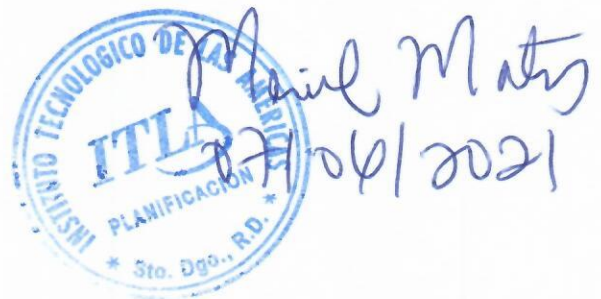 INSTITUTO TECNOLOGICO DE LAS AMERICAS
ITLA
PLANIFICACIÓN
* Sto. Dgo., R.D. *
Mariel Matos
07/04/2021